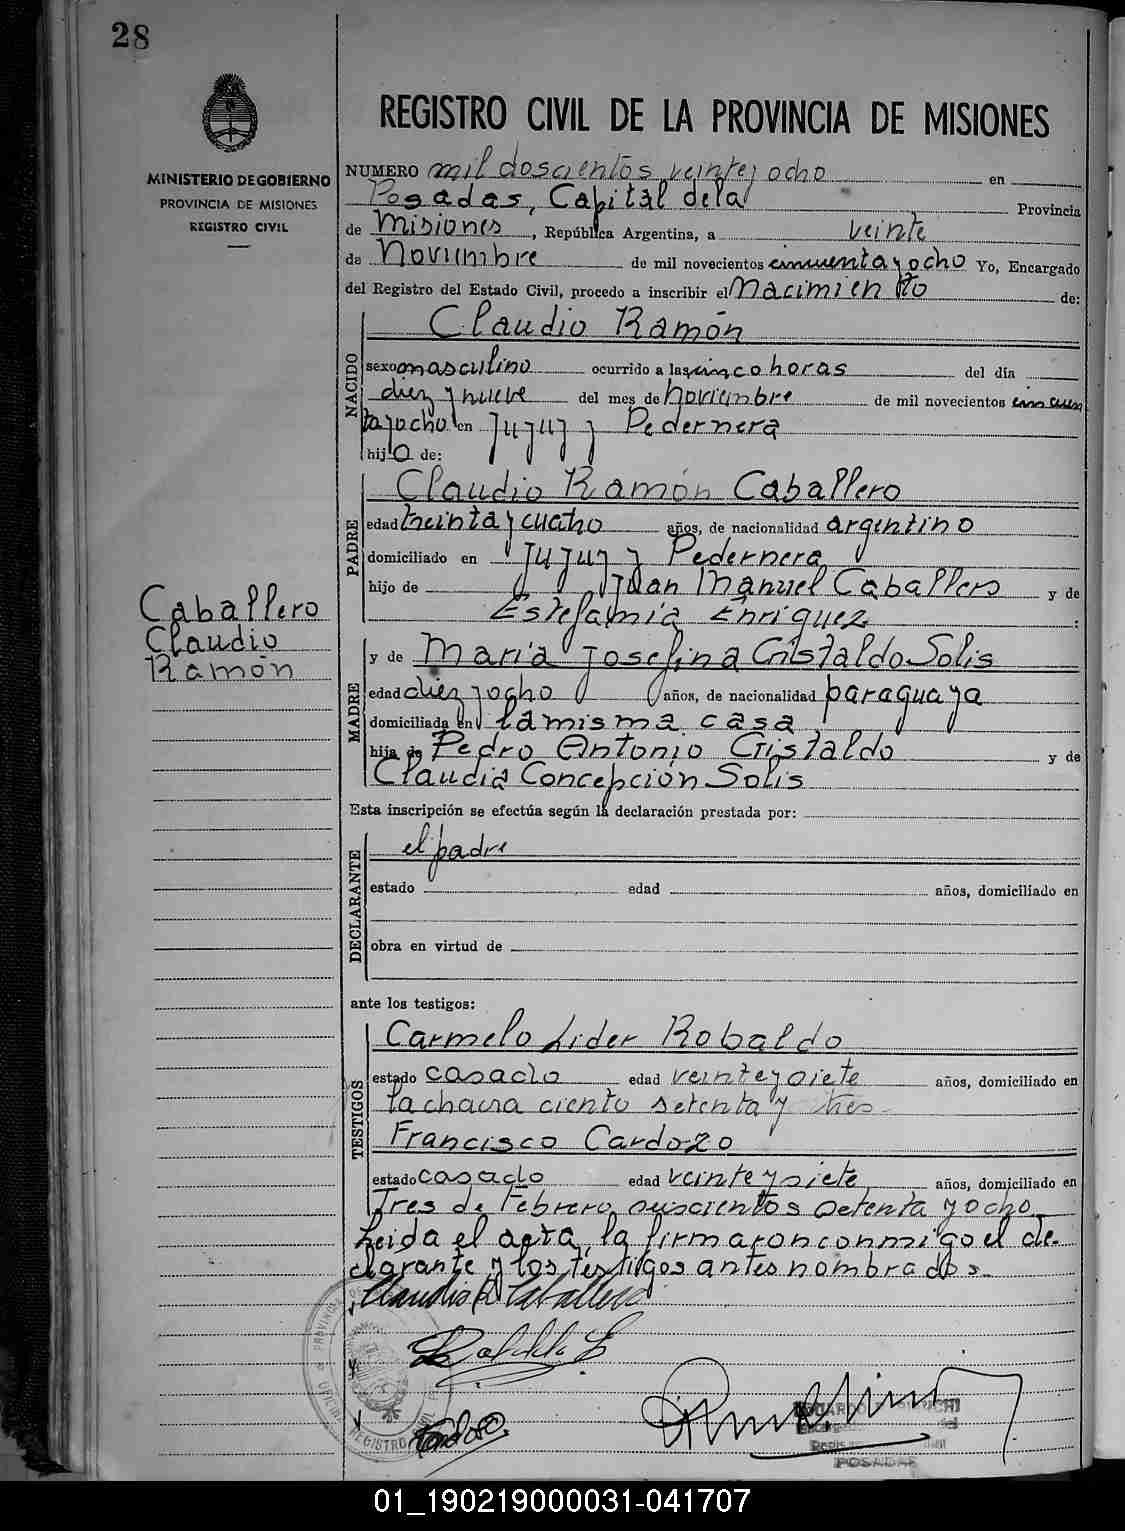 28
MINISTERIO DE GOBIERNO
PROVINCIA DE MISIONES
REGISTRO CIVIL
Caballero
Claudio
Ramón
REGISTRO CIVIL DE LA PROVINCIA DE MISIONES
NUMERO mil doscientos veinte y ocho en
Posadas, Capital de la Provincia
de Misiones, República Argentina, a veinte
de Noviembre de mil novecientos cincuenta y ocho Yo, Encargado
del Registro del Estado Civil, procedo a inscribir el Nacimiento de:
NACIDO
Claudio Ramón
sexo masculino ocurrido a las cinco horas del día
diez y nueve del mes de Noviembre de mil novecientos cincuen
ta y ocho en Jujuy y Pedernera
hijo de:
PADRE
Claudio Ramón Caballero
edad treinta y cuatro años, de nacionalidad argentino
domiciliado en Jujuy y Pedernera
hijo de Juan Manuel Caballero y de
Estefamia Enriquez :
MADRE
y de María Josefina Gistaldo Solis
edad diez y ocho años, de nacionalidad paraguaya
domiciliada en la misma casa
hija de Pedro Antonio Gistaldo y de
Claudia Concepción Solis
Esta inscripción se efectúa según la declaración prestada por:
DECLARANTE
el padre
estado edad años, domiciliado en
obra en virtud de
ante los testigos:
TESTIGOS
Carmelo Lider Robaldo
estado casado edad veinte y siete años, domiciliado en
la chacra ciento setenta y tres
Francisco Cardozo
estado casado edad veinte y siete años, domiciliado en
Tres de Febrero seiscientos setenta y ocho
Leida el acta, la firmaron conmigo el de-
clarante y los testigos antes nombrados.
Claudio R Caballero
Cardozo
POSADAS
01_190219000031-041707